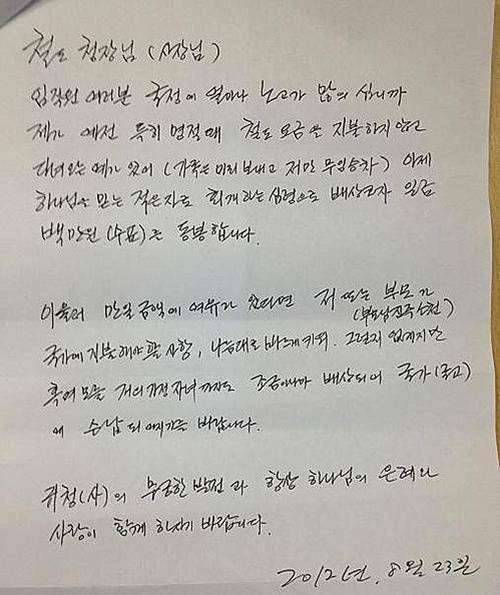 철도 청장님 (사장님)
임직원 여러분 국정에 얼마나 노고가 많으십니까
제가 예전 특히 명절때 철도 요금을 지불하지 않고
다녀오는 예가 있어 (가족은 미리 보내고 저만 무임승차) 이제
하나님을 믿는 적은자로 회개하는 심령으로 배상코자 일금
백만원 (수표)을 동봉합니다.
아울러 만일 금액에 여유가 있다면 저 또는 부모가
(부모님 진주 순천)
국가에 지불해야 할 사항, 나름대로 바르게 키워. 그렇지 않겠지만
혹여 모를 저의 가정 자녀까지도 조금이나마 배상되어 국가(국고)
에 수납되어지기를 바랍니다.
귀청(사)의 무궁한 발전과 항상 하나님의 은혜와
사랑이 함께 하시기 바랍니다.
2012년. 8월 23일